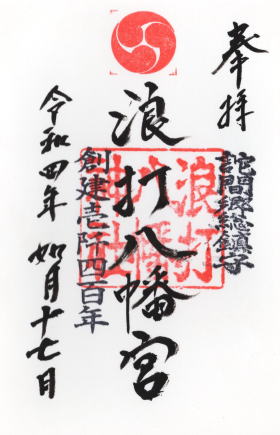 奉拝
詫間郷総鎮守
浪打八幡宮
浪打
八幡
神社
創建壱阡四百年
令和四年 如月十七日